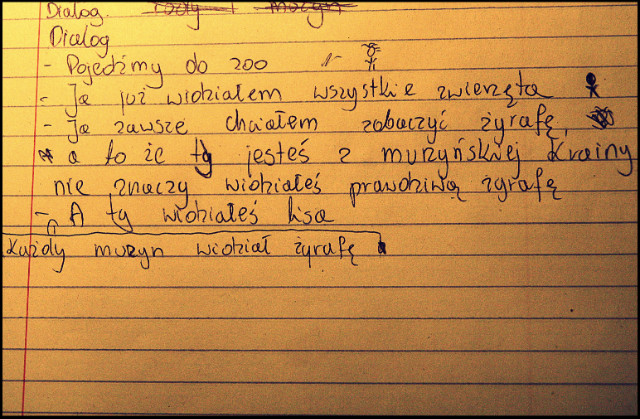 Dialog. Rudy i murzyn
Dialog
- Pojedźmy do zoo
- Ja już widziałem wszystkie zwierzęta
- Ja zawsze chciałem zobaczyć żyrafę,
a to że ty jesteś z murzyńskiej krainy
nie znaczy widziałeś prawdziwą żyrafę
- A ty widziałeś lisa
Każdy murzyn widział żyrafę